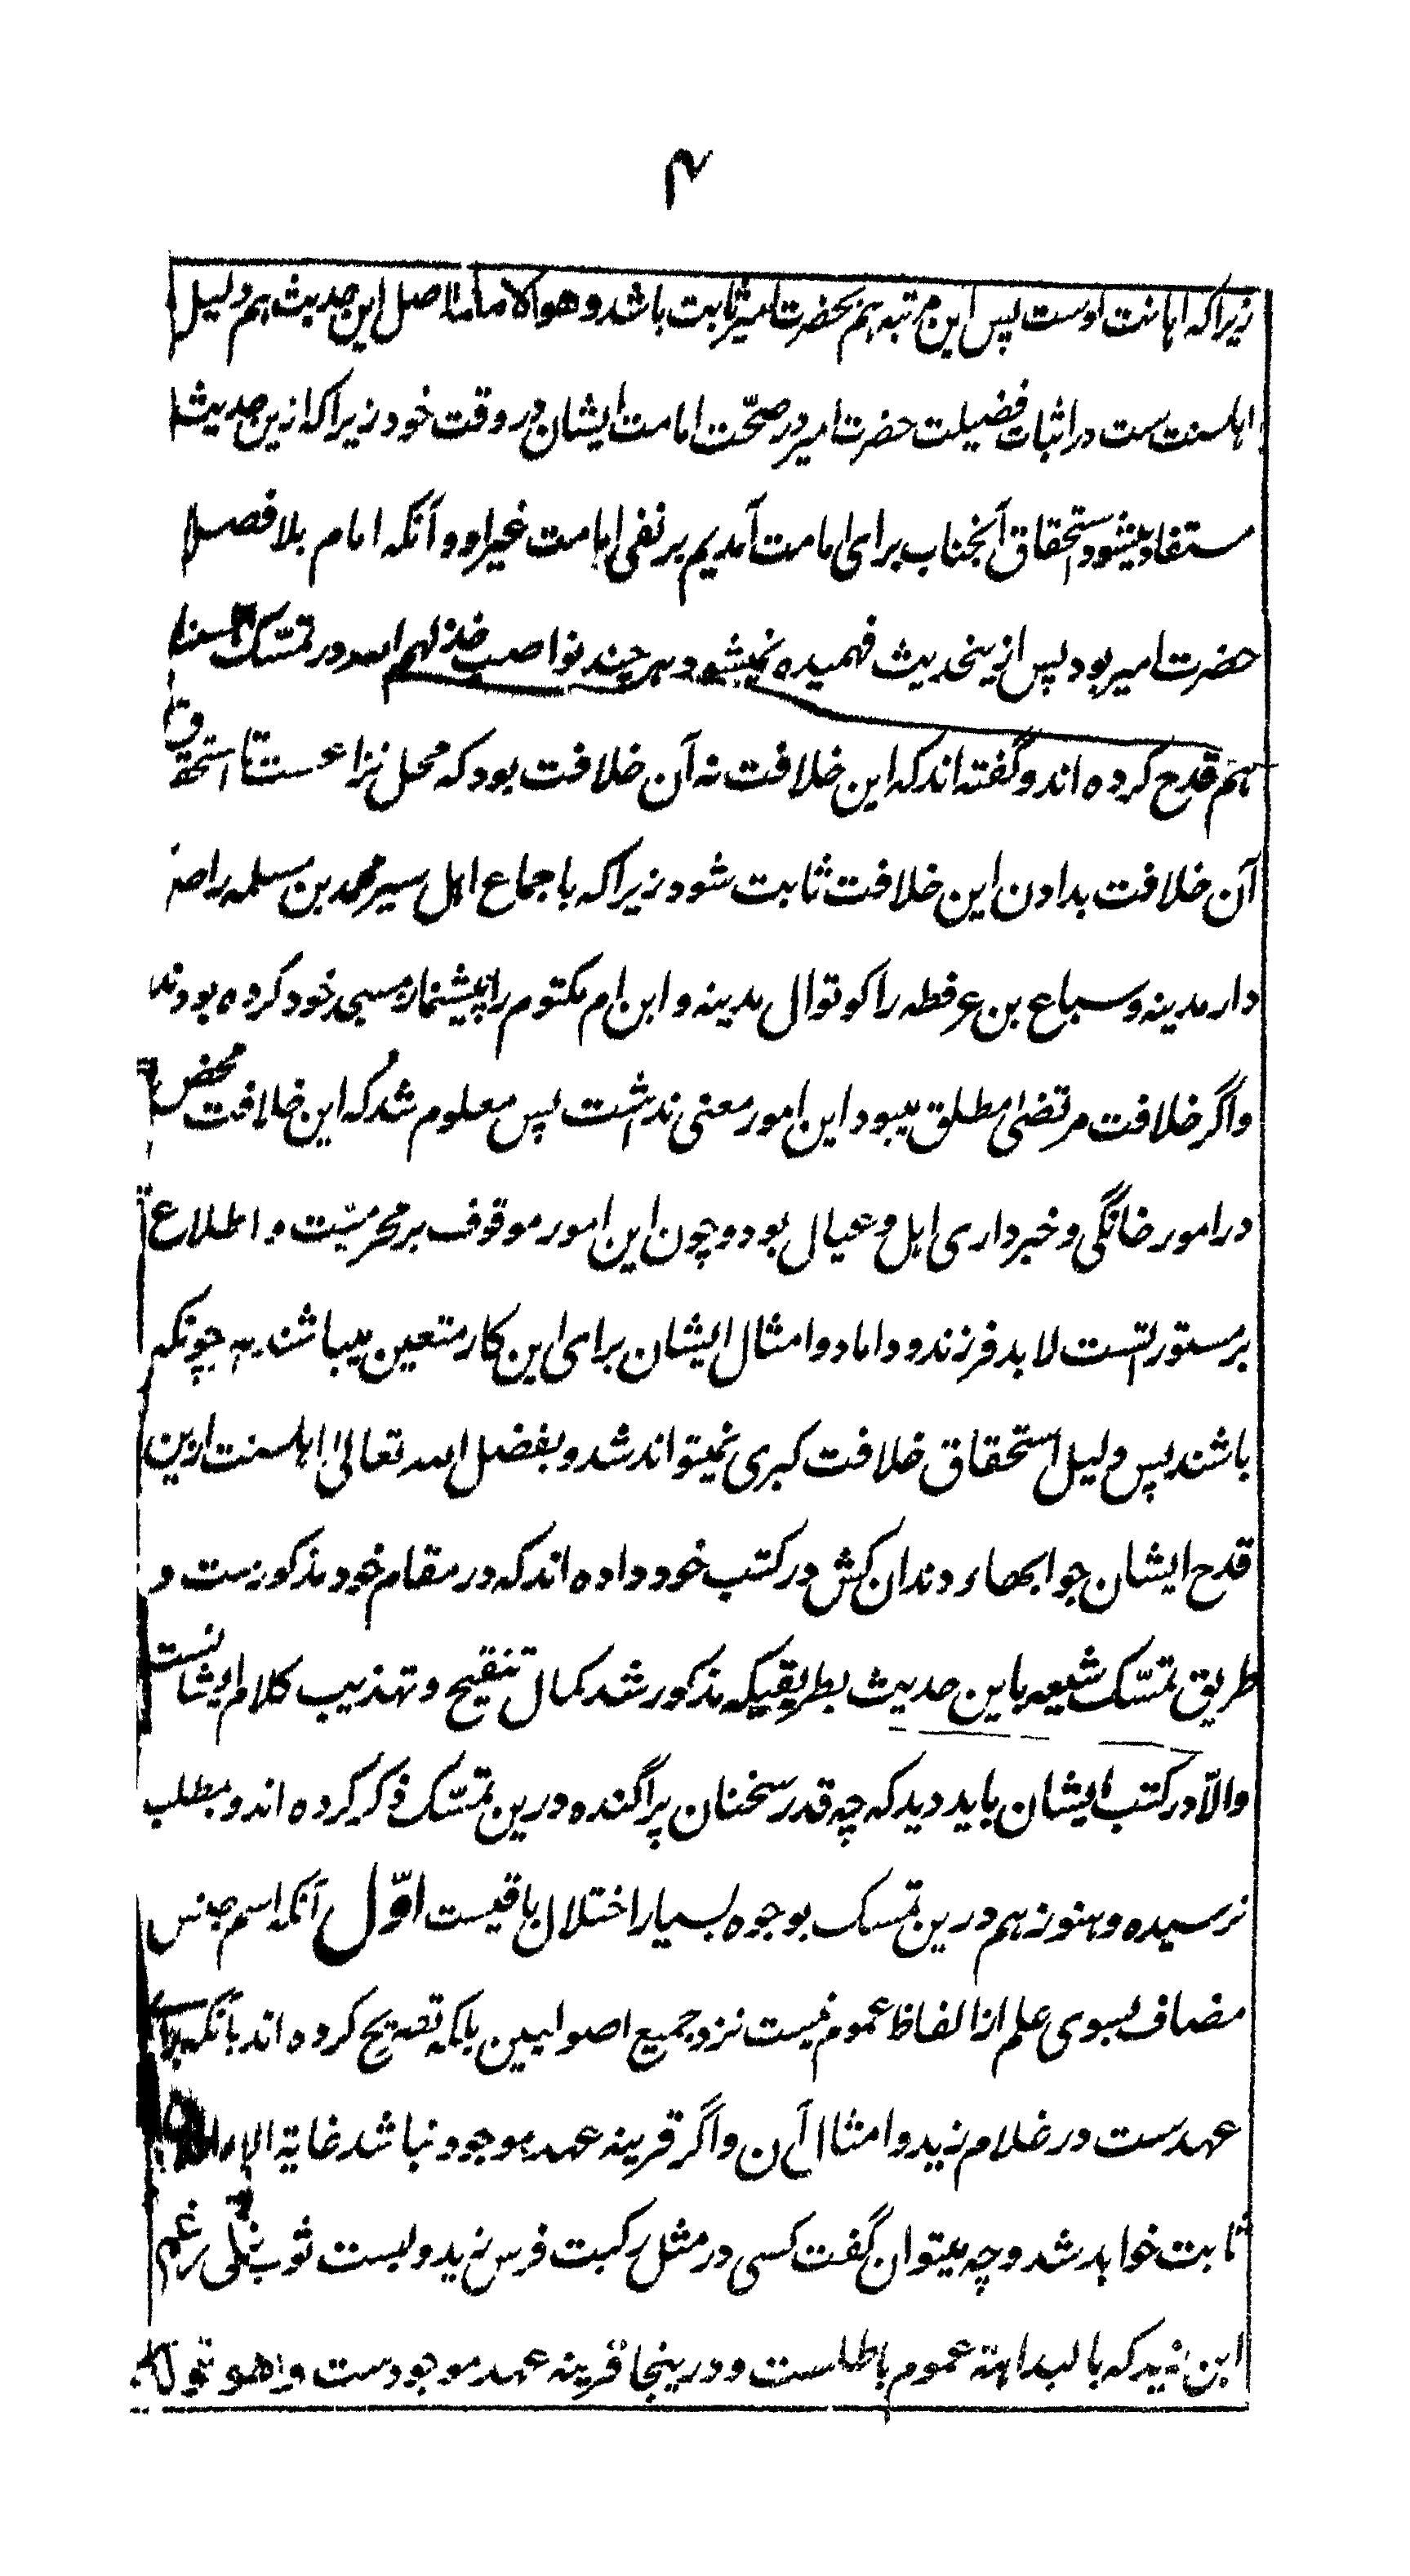 ۴
زیراکه اهانت اوست پس این مرتبه هم بحضرت امیر ثابت باشد و هو الامامة اصل این حدیث هم دلیل
اهلسنت ست در اثبات فضیلت حضرت امیر در صحّت امامت ایشان در وقت خود زیراکه ازین حدیث
مستفاد میشود استحقاق آنجناب برای امامت آمدیم بر نفی امامت غیر او و آنکه امام بلا فصل
حضرت امیر بود پس ازینحدیث فهمیده نمیشود هر چند نواصب خذلهم الله در تمسّک اهل سنت
هم قدح کرده اند و گفته اند که این خلافت نه آن خلافت بود که محل نزاعست تا استحقاق
آن خلافت بدادن این خلافت ثابت شود زیراکه باجماع اهل سیر محمد بن مسلمه را صوبه
دار مدینه و سباع بن عرفطه را کوتوال مدینه و ابن ام مکتوم را پیشنماز مسجد خود کرده بودند
و اگر خلافت مرتضی مطلق میبود این امور معنی نداشت پس معلوم شد که این خلافت محض
در امور خانگی و خبرداری اهل و عیال بود و چون این امور موقوف بر محرمیّت و اطلاع
بر مستوراتست لابد فرزند و داماد و امثال ایشان برای این کار متعین میباشند هر چونکه
باشند پس دلیل استحقاق خلافت کبری نمیتواند شد و بفضل الله تعالی اهلسنت ازین
قدح ایشان جوابهاء دندان کش در کتب خود داده اند که در مقام خود مذکورست و
طریق تمسّک شیعه باین حدیث بطریقیکه مذکور شد کمال تنقیح و تهذیب کلام ایشانست
والّا در کتب ایشان باید دید که چه قدر سخنان پراگنده درین تمسّک ذکر کرده اند و بمطلب
نرسیده و هنوز هم درین تمسک بوجوه بسیار اختلال باقیست اوّل آنکه اسم جنس
مضاف بسوی علم از الفاظ عموم نیست نزد جمیع اصولیین بلکه تصریح کرده اند بآنکه برای
عهدست در غلام زید و امثال آن و اگر قرینه عهد موجود نباشد غایة الامر
ثابت خواهد شد و چه میتوان گفت کسی در مثل رکبت فرس زید و لبست ثوب
ابن زید که بالبداهة عموم باطلست و درینجا قرینه عهد موجودست و هو قوله